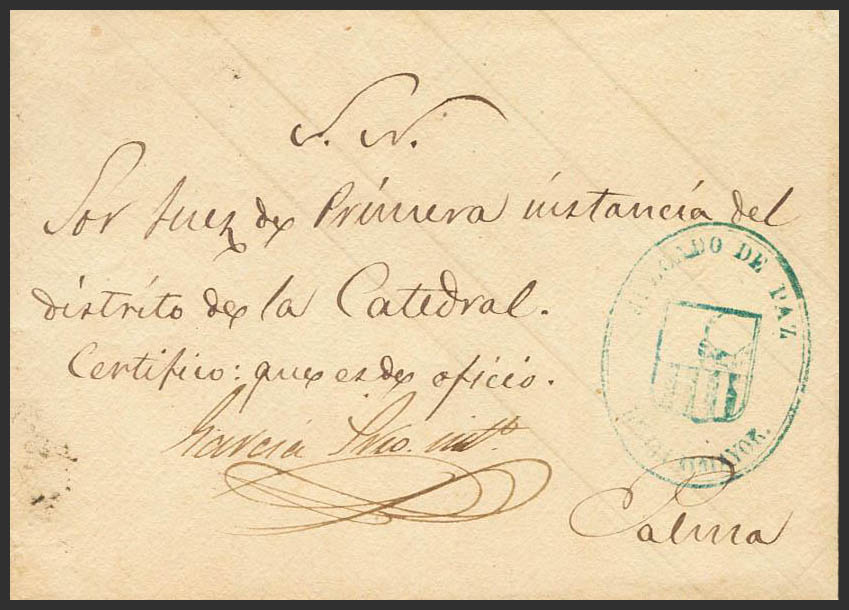 S. N.
Sor Juez de Primera instancia del
distrito de la Catedral.
Certifico: que es de oficio.
García Srio. intº.
JUZGADO DE PAZ
Palma